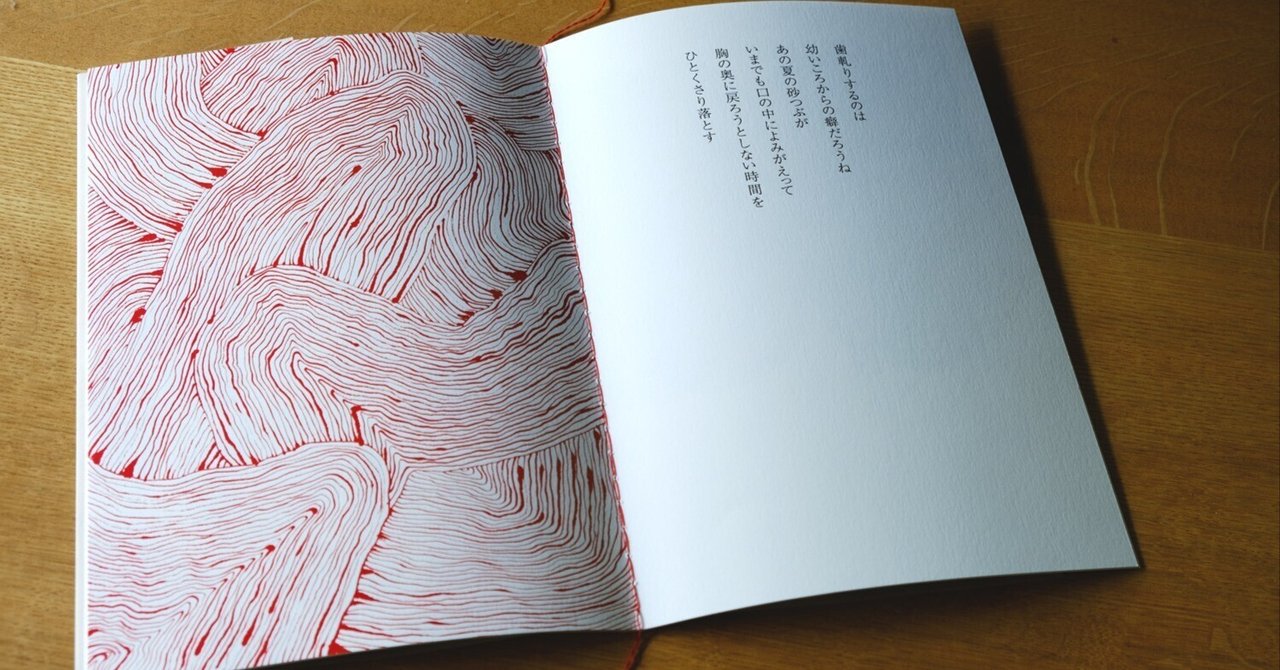 歯軋りするのは
幼いころからの癖だろうね
あの夏の砂つぶが
いまでも口の中によみがえって
胸の奥に戻ろうとしない時間を
ひとくさり落とす